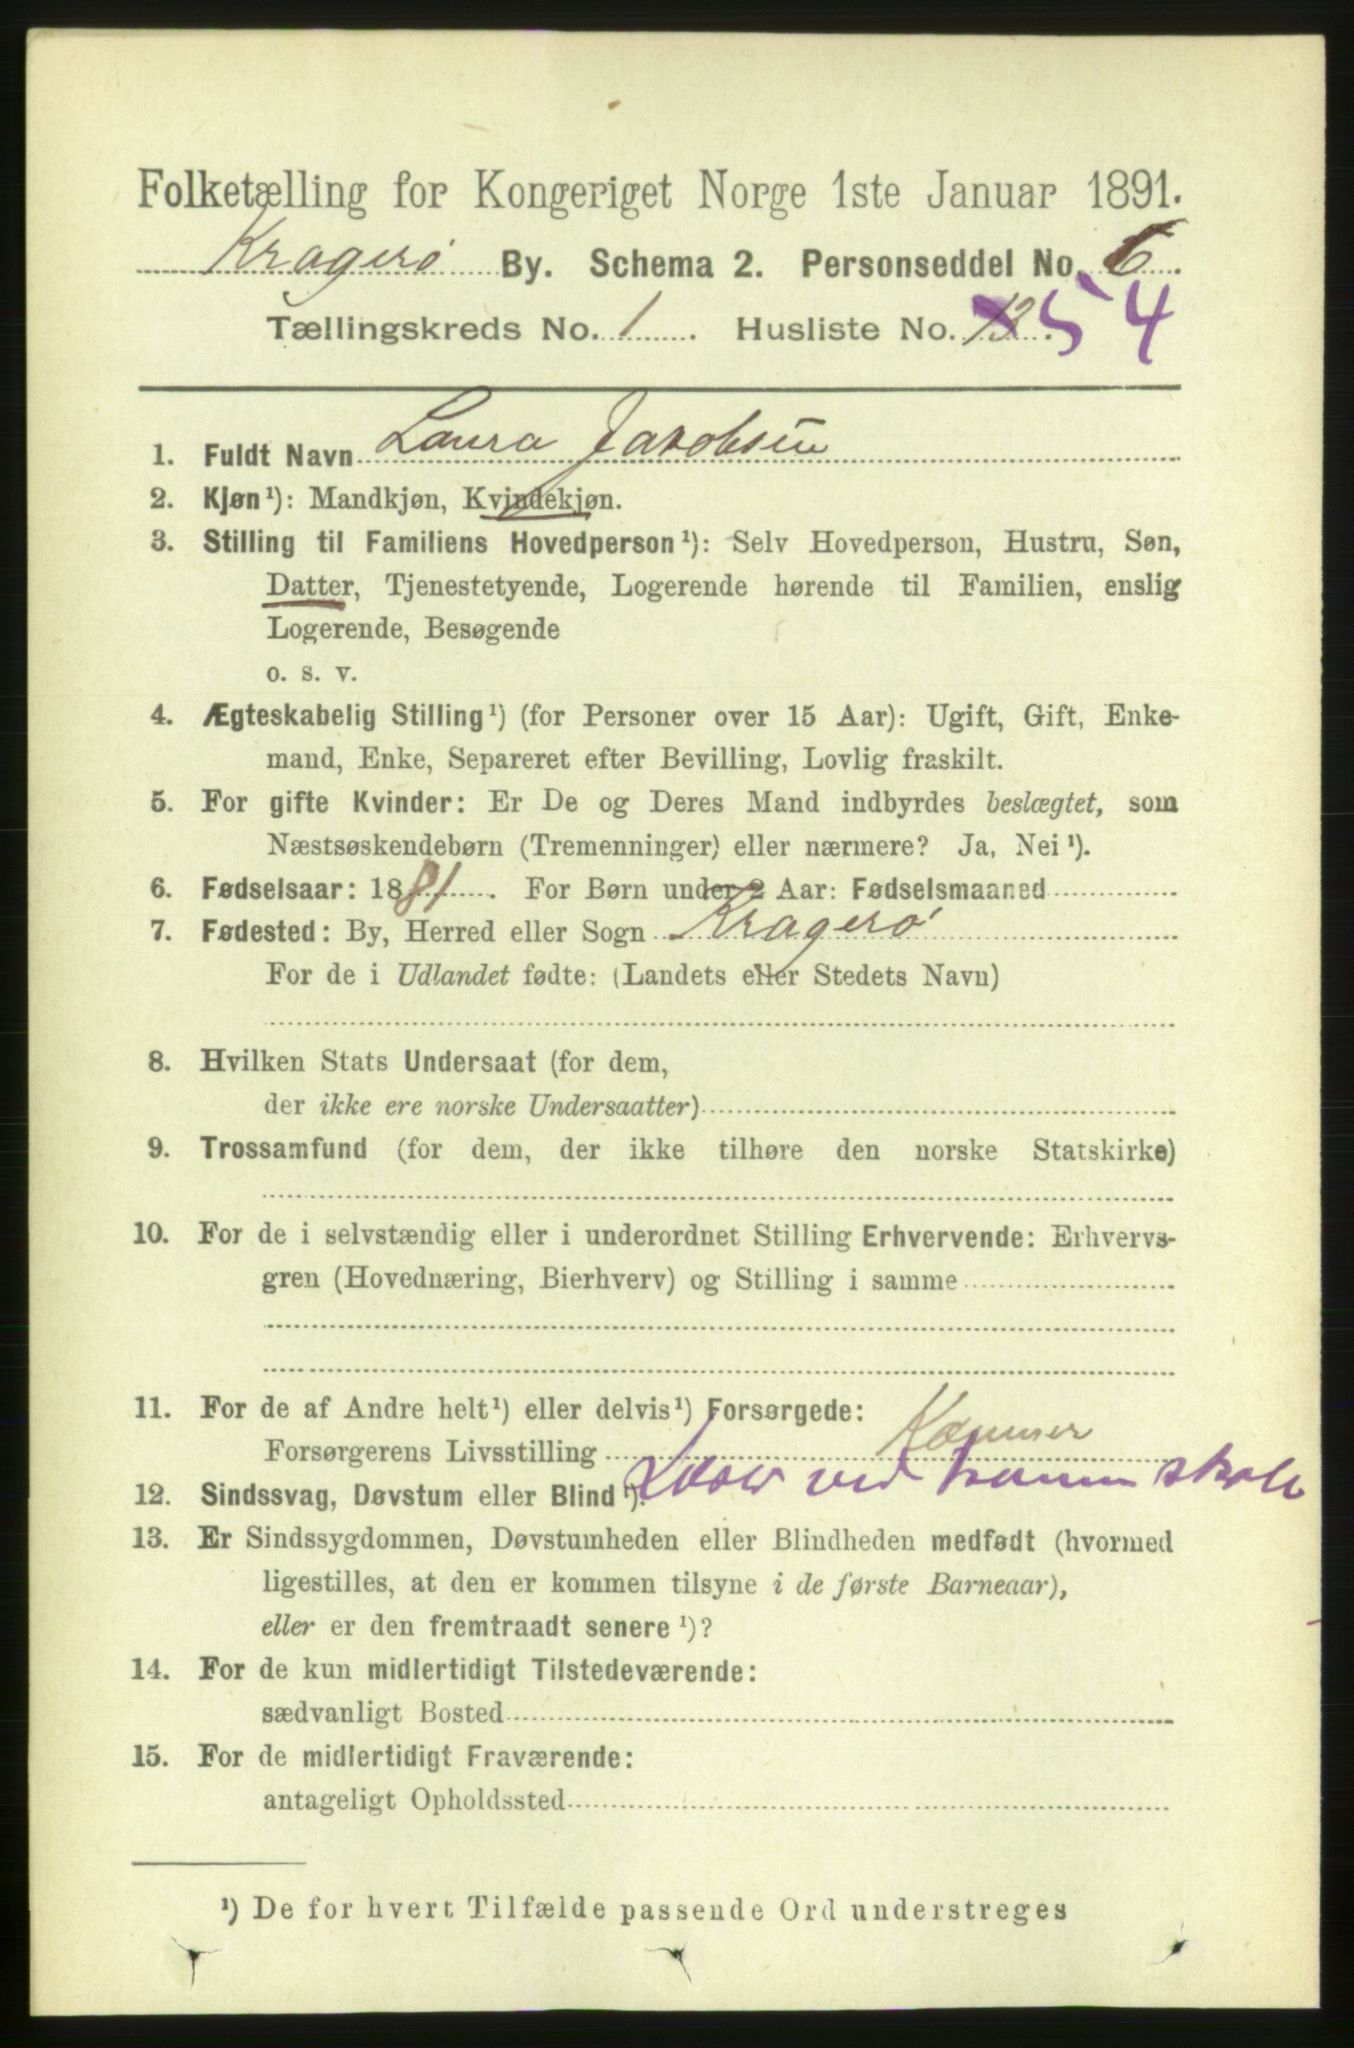 Folketælling for Kongeriget Norge 1ste Januar 1891.
Kragerø By. Schema 2. Personseddel No. 6.
Tællingskreds No. 1. Husliste No. 13. 54
1. Fuldt Navn Laura Jacobsen
2. Kjøn¹): Mandkjøn, Kvindekjøn.
3. Stilling til Familiens Hovedperson¹): Selv Hovedperson, Hustru, Søn,
Datter, Tjenestetyende, Logerende hørende til Familien, enslig
Logerende, Besøgende
o. s. v.
4. Ægteskabelig Stilling¹) (for Personer over 15 Aar): Ugift, Gift, Enke-
mand, Enke, Separeret efter Bevilling, Lovlig fraskilt.
5. For gifte Kvinder: Er De og Deres Mand indbyrdes beslægtet, som
Næstsøskendebørn (Tremenninger) eller nærmere? Ja, Nei¹).
6. Fødselsaar: 1881. For Børn under 2 Aar: Fødselsmaaned
7. Fødested: By, Herred eller Sogn Kragerø
For de i Udlandet fødte: (Landets eller Stedets Navn)
8. Hvilken Stats Undersaat (for dem,
der ikke ere norske Undersaatter)
9. Trossamfund (for dem, der ikke tilhøre den norske Statskirke)
10. For de i selvstændig eller i underordnet Stilling Erhvervende: Erhvervs-
gren (Hovednæring, Bierhverv) og Stilling i samme
11. For de af Andre helt¹) eller delvis¹) Forsørgede:
Forsørgerens Livsstilling Kæmner
ved skole
12. Sindssvag, Døvstum eller Blind¹).
13. Er Sindssygdommen, Døvstumheden eller Blindheden medfødt (hvormed
ligestilles, at den er kommen tilsyne i de første Barneaar),
eller er den fremtraadt senere¹)?
14. For de kun midlertidigt Tilstedeværende:
sædvanligt Bosted
15. For de midlertidigt Fraværende:
antageligt Opholdssted
¹) De for hvert Tilfælde passende Ord understreges